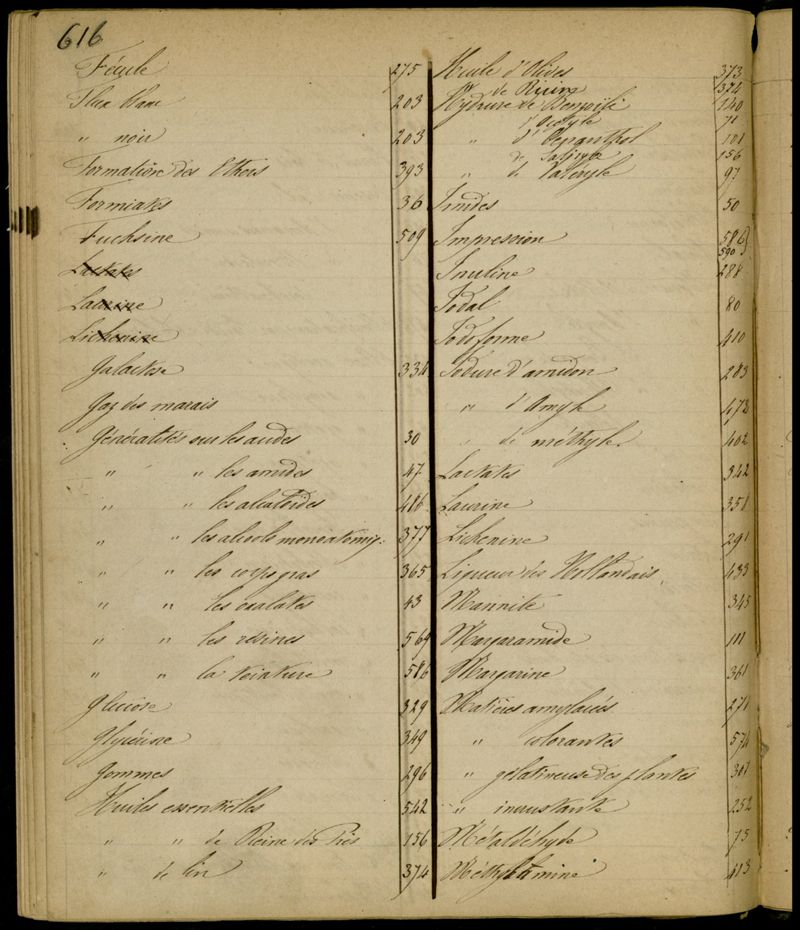 616
Fécule 275
Flux blanc 203
" noir 203
Formation des Ethers 393
Formiates 36
Fuchsine 509
Lactates
Laurine
Lichenine
Galactose 334
Gaz des marais
Généralités sur les acides 30
" " les amides 47
" " les alcaloïdes 486
" " les alcools monoatomiq: 377
" " les corps gras 365
" " les oxalates 43
" " les résines 569
" " la teinture 586
Glucose 329
Glycérine 349
Gommes 296
Huiles essentielles 542
" " de Reine des Prés 156
" de lin 374
Huile d'Olives 373
" de Ricins 374
Hydrure de Benzoïle 140
" d'Acétyle 71
" d'Oenanthol 101
" de Salicyle 156
" de Valéryle 97
Imides 50
Impression 586
590
Inuline 288
Iodal 80
Iodoforme 410
Iodure d'amidon 283
" d'Amyle 472
" de méthyle 402
Lactates 342
Laurine 358
Lichenine 291
Liqueur des Hollandais 433
Mannite 345
Margaramide 111
Margarine 361
Matières amylacées 271
" colorantes 574
" gélatineuse des plantes 301
" incrustante 252
Métaldéhyde 75
Méthylamine 413